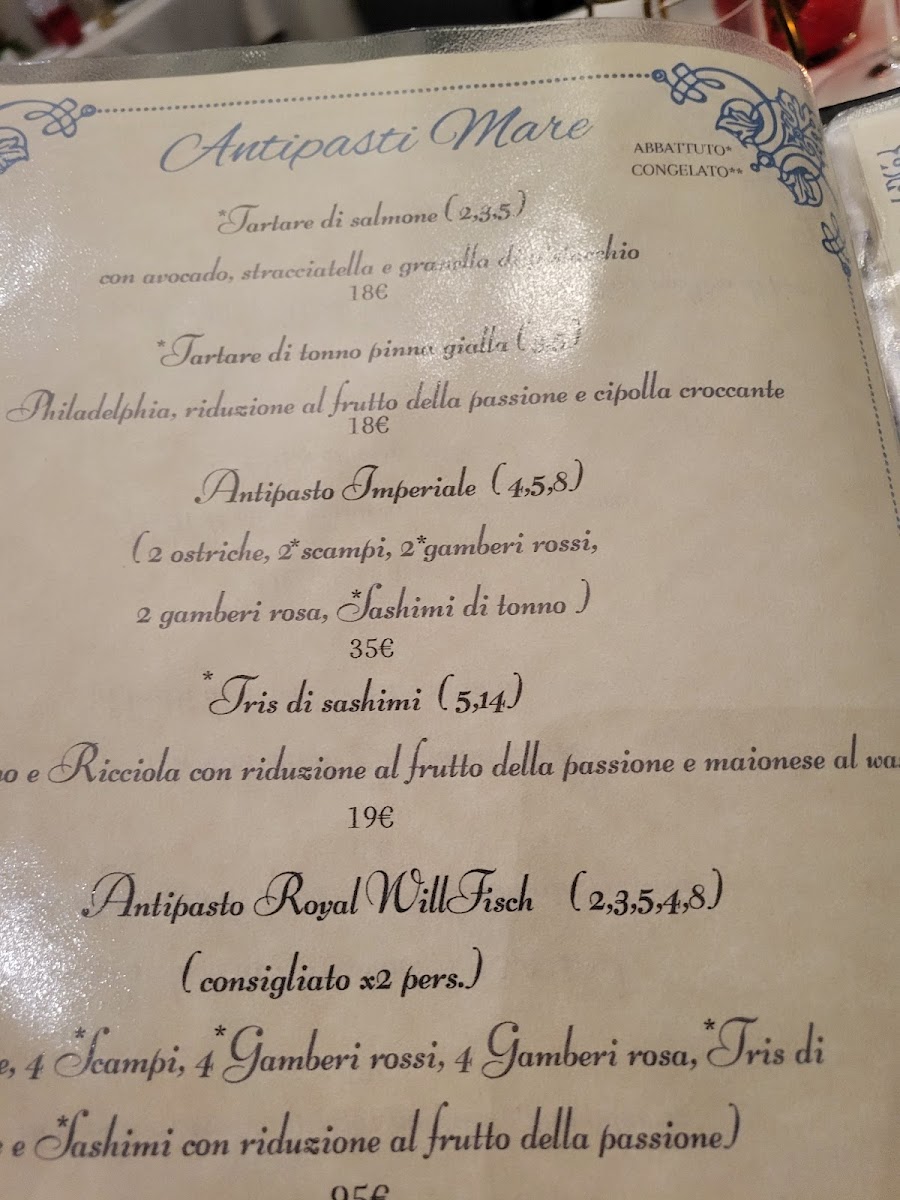 Antipasti Mare
ABBATTUTO*
CONGELATO**
*Tartare di salmone (2,3,5)
con avocado, stracciatella e granella di pistacchio
18€
*Tartare di tonno pinna gialla (3,5)
Philadelphia, riduzione al frutto della passione e cipolla croccante
18€
Antipasto Imperiale (4,5,8)
(2 ostriche, 2*scampi, 2*gamberi rossi,
2 gamberi rosa, *Sashimi di tonno )
35€
*Tris di sashimi (5,14)
e Ricciola con riduzione al frutto della passione e maionese al
19€
Antipasto Royal WillFisch (2,3,5,4,8)
(consigliato x2 pers.)
4 *Scampi, 4 *Gamberi rossi, 4 Gamberi rosa, *Tris di
e *Sashimi con riduzione al frutto della passione)
95€